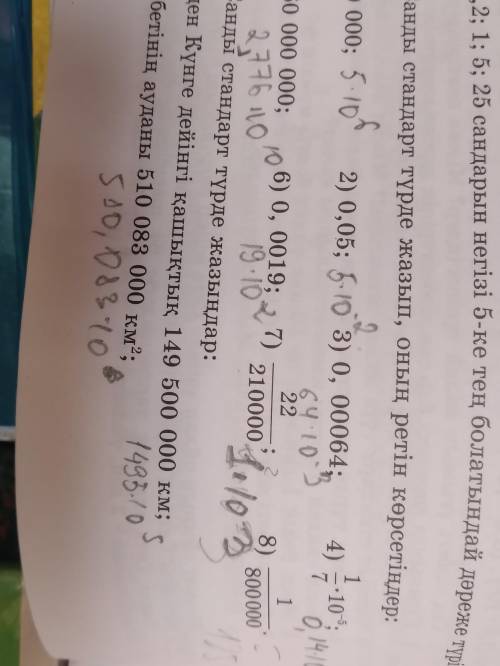 ,2; 1; 5; 25 сандарын негізі 5-ке тең болатындай дәреже түрі
санды стандарт түрде жазып, оның ретін көрсетіңдер:
000; 5·10⁶ 2) 0,05; 5·10⁻² 3) 0, 00064; 64·10⁻³ 4) 1/7·10⁻⁵; 0,141
0 000 000; 2,776·10¹⁰ 6) 0, 0019; 19·10⁻² 7) 22/210000; 1·10⁻³ 8) 1/800000.
санды стандарт түрде жазыңдар:
ден Күнге дейінгі қашықтық 149 500 000 км; 1495·10⁵
бетінің ауданы 510 083 000 км²;
510,083·10⁶